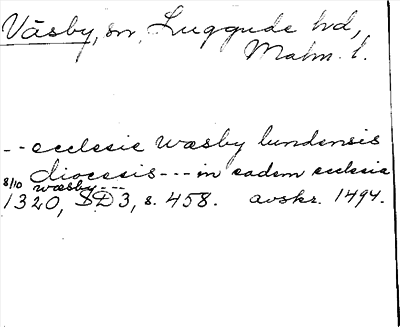 Väsby, sn, Luggude hd,
Malm. l.
-- ecclesie wæsby lundensis
diocesis --- in eadem ecclesia
wæsby ---
8/10 1320, SD3, s. 458. avskr. 1494.